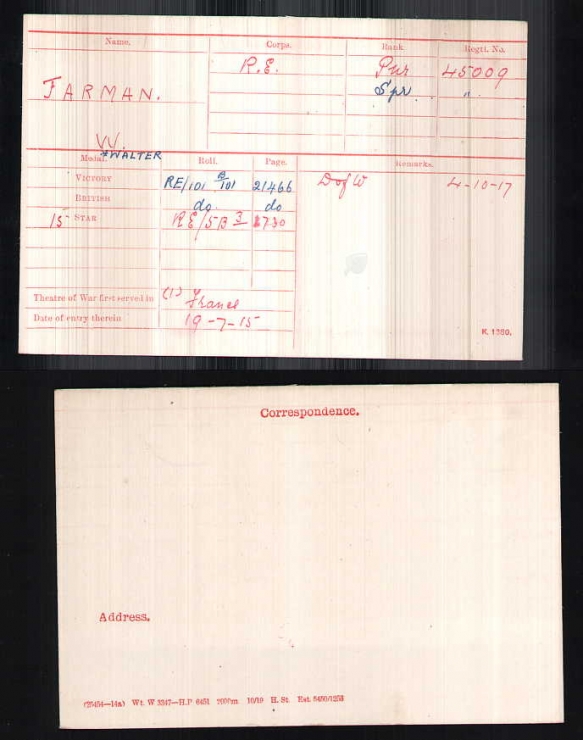 Name. Corps. Rank Regtl. No.
FARMAN. R.E. Pnr 45009
Spr. "
W.
*WALTER
Medal. Roll. Page. Remarks.
VICTORY RE/101 B/101 21466 DofW 4-10-17
BRITISH do. do
15 STAR RE/5B3 2730
Theatre of War first served in (1) France
Date of entry therein 19-7-15
K. 1380.
Correspondence.
Address.
(25454—14a) Wt. W 3347—H.P 6451 7000m 10/19 H. St. Est. 5450/1253